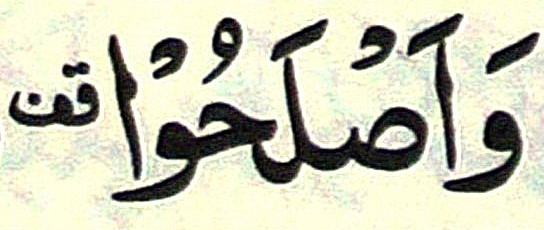 وَاَصْلَحُوْا قف